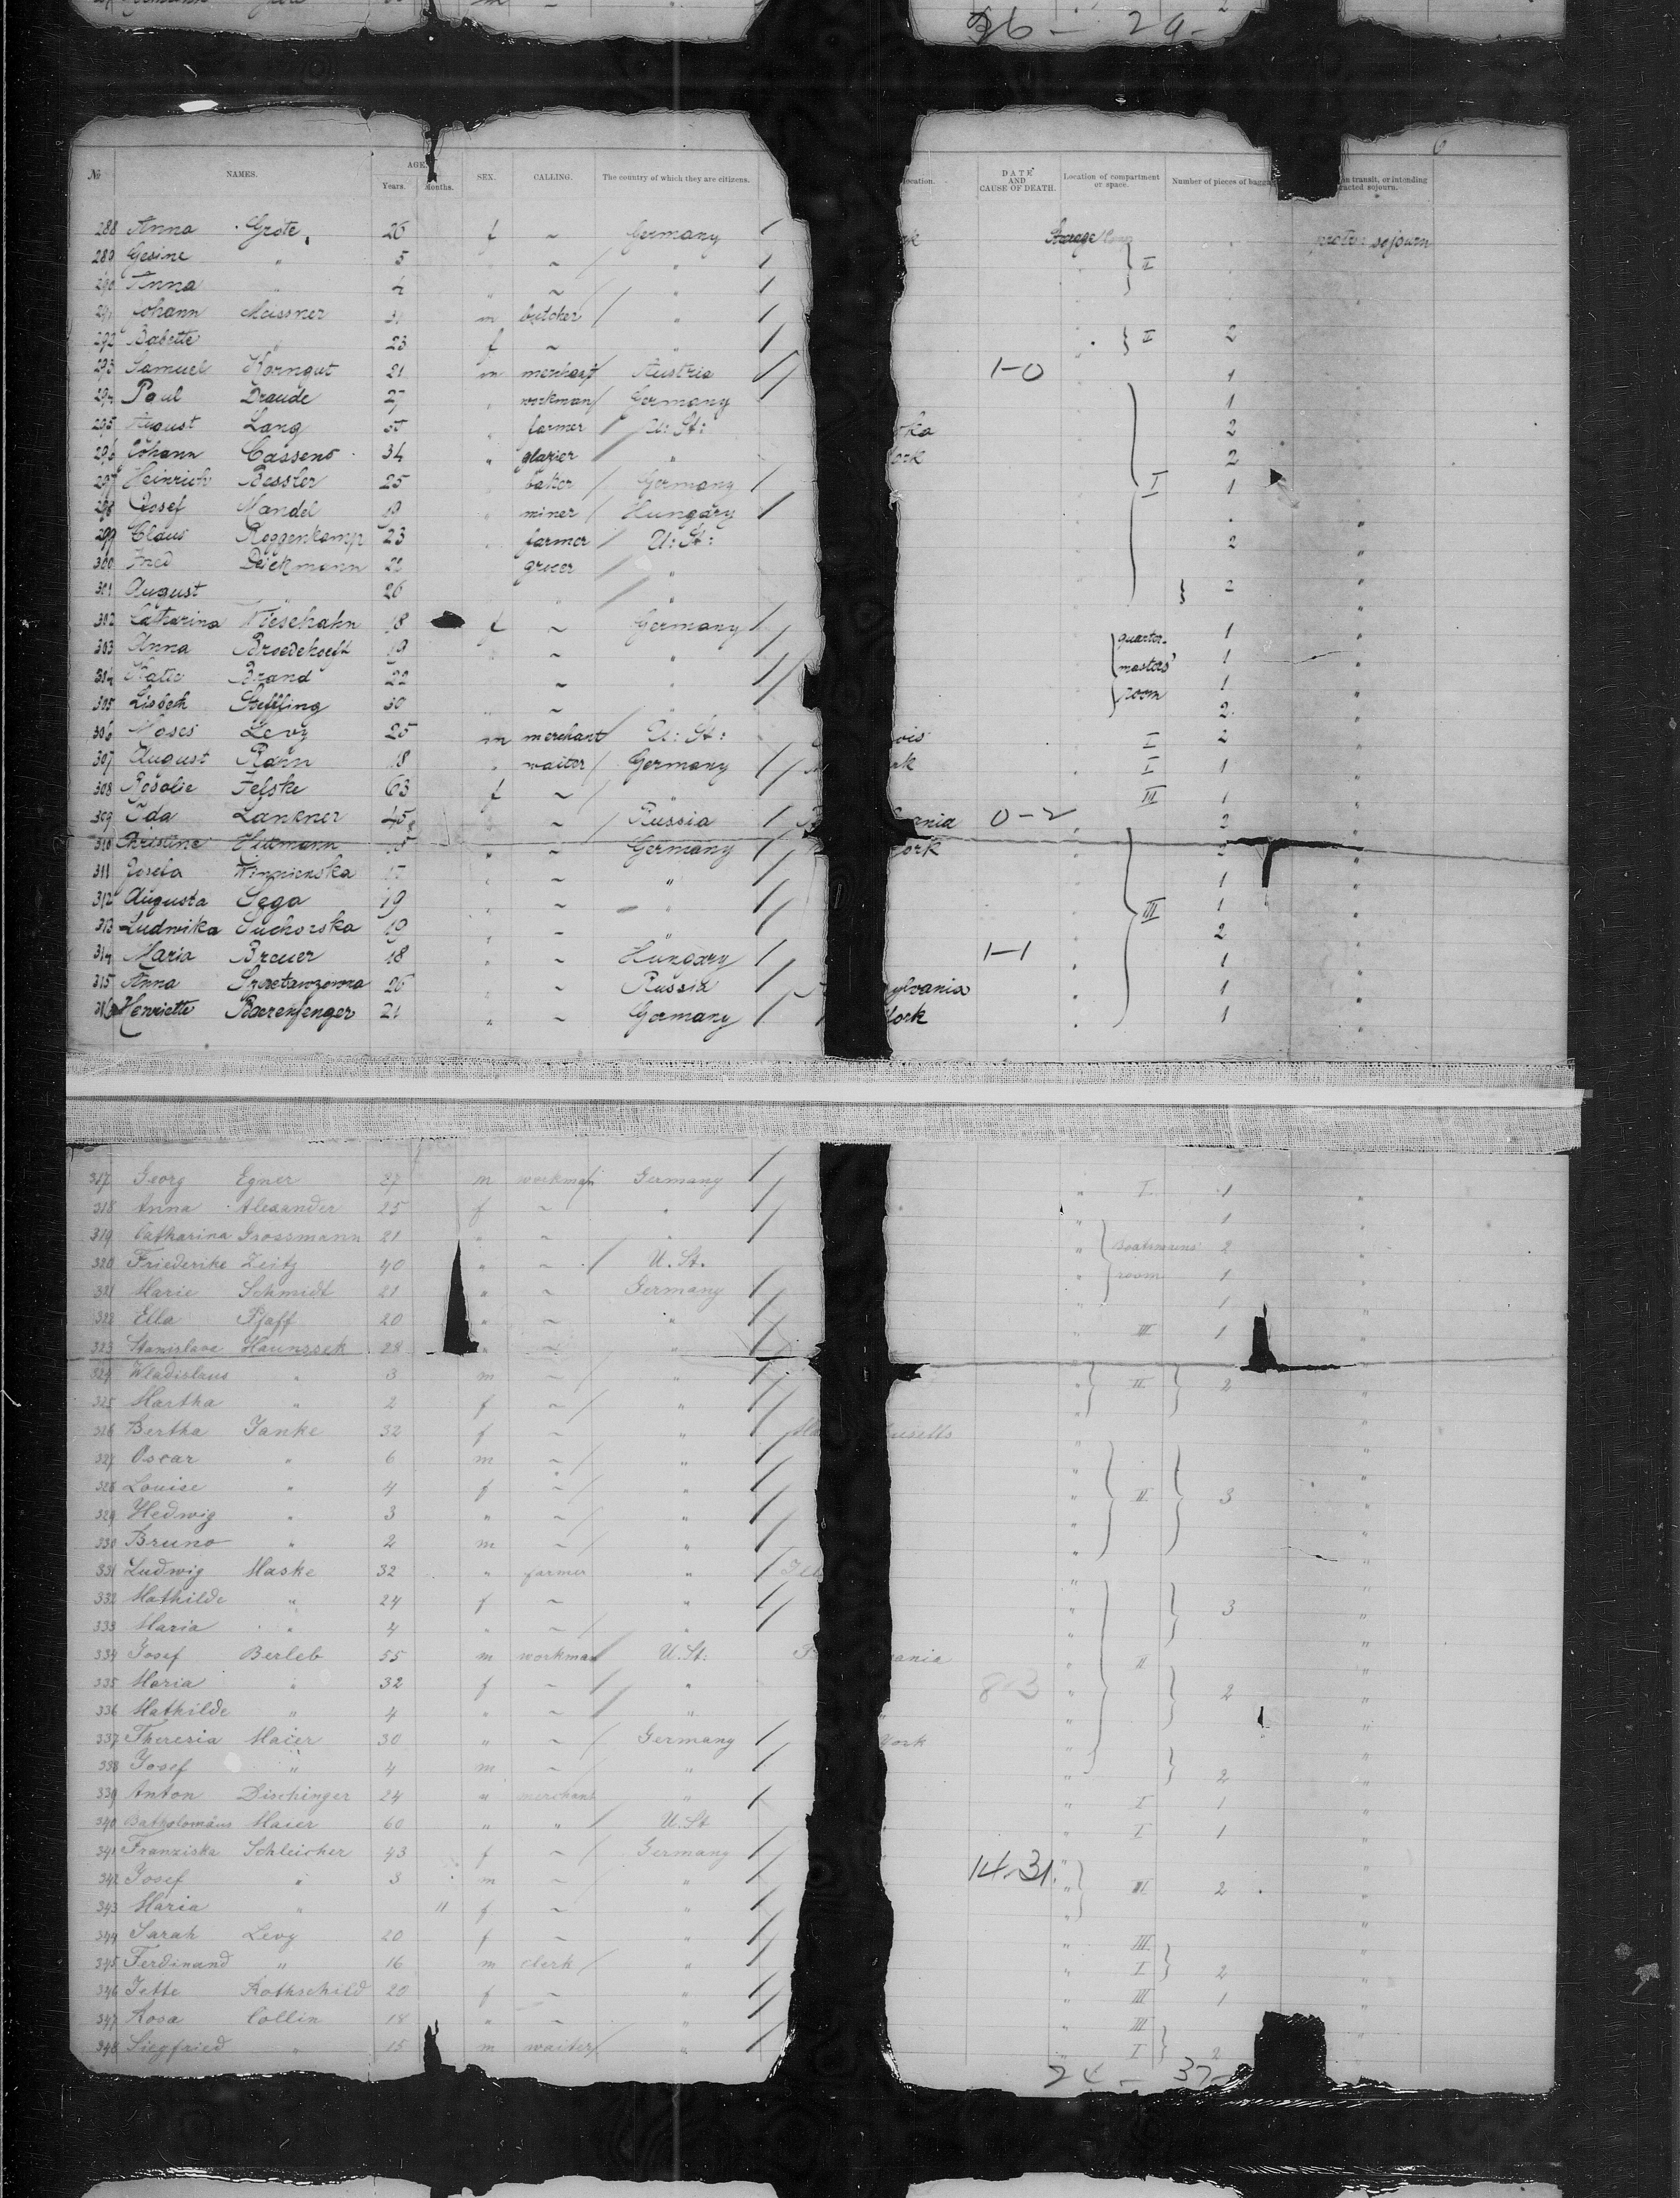 36 - 29 -
6
No NAMES. AGE. Years. Months. SEX. CALLING. The country of which they are citizens. location. DATE AND CAUSE OF DEATH. Location of compartment or space. Number of pieces of bagga in transit, or intending acted sojourn.
288 Anna Grote 26 f ~ Germany rk Steerage sojourn
289 Gesine " 5 " ~ " } I
290 Anna " " ~ "
291 Johann Meissner 31 m butcher "
292 Babette " 23 f ~ " } I 2
293 Samuel Korngut 21 m merchant Austria 1-0 1
294 Paul Draude 27 " workman Germany 1
295 August Lang " farmer U: St: ka 2
296 Johann Cassens 34 " glazier " ork 2
297 Heinrich Bessler 25 " baker Germany I 1
298 Josef Mandel 19 " miner Hungary
299 Claus Roggenkamp 23 farmer U: St: 2 "
300 Fred Dieckmann 22 grocer " "
301 August " 26 " " } 2 "
302 Catharina Wiesehahn 18 f ~ Germany 1 "
303 Anna Broedehoeft 19 " ~ " quarter- 1 "
304 Katie Brand 22 ~ " masters' 1 "
305 Lisbeth Steffing 30 " ~ " room 2 "
306 Moses Levy 25 m merchant U: St: ois I 2 "
307 August Rahn 18 " waiter Germany rk I 1 "
308 Rosalie Felske 63 f ~ " III 1 "
309 Ida Lankner 45 ~ Russia nia 0-2 2 "
310 Christine Hittmann " ~ Germany ork "
311 Josefa 17 " ~ " 1 "
312 Augusta Sega 19 " ~ " 1 "
313 Ludwika Suchorska 19 " ~ " III 2 "
314 Maria Breuer 18 " ~ Hungary 1-1 1 "
315 Anna 26 " ~ Russia ylvania 1 "
316 Henriette Baerenfenger 21 " ~ Germany York 1 "
317 Georg Egner 27 m workman Germany " I 1 "
318 Anna Alexander 25 f ~ " " 1 "
319 Catharina Grossmann 21 " ~ " " boatswains' 2 "
320 Friederike Zeitz 40 " ~ U. St. " room 1 "
321 Marie Schmidt 21 " ~ Germany " 1 "
322 Ella Pfaff 20 " ~ " " III 1 "
323 Stanislava Haunssek 28 " ~ " "
324 Wladislaus " 3 m ~ " " II 2 "
325 Martha " 2 f ~ " " "
326 Bertha Janke 32 f ~ " Ma usetts " "
327 Oscar " 6 m ~ " " "
328 Louise " 4 f ~ " " II 3 "
329 Hedwig " 3 " ~ " " "
330 Bruno " 2 m ~ " " "
331 Ludwig Maske 32 " farmer " Ill " "
332 Mathilde " 24 f ~ " " 3 "
333 Maria " 4 " ~ " " "
334 Josef Berleb 55 m workman U. St: P ania " II "
335 Maria " 32 f ~ " " 2 "
336 Mathilde " 4 " ~ " " " "
337 Theresia Maier 30 " ~ Germany York " "
338 Josef " 4 m ~ " " 2 "
339 Anton Dischinger 24 " merchant " " I 1 "
340 Batholomäus Maier 60 " " U. St " I 1 "
341 Franziska Schleicher 43 f ~ Germany " "
342 Josef " 3 m ~ " 14-31. " III 2 "
343 Maria " 11 f ~ " " "
344 Sarah Levy 20 f ~ " " III "
345 Ferdinand " 16 m clerk " " I 2 "
346 Jette Rothschild 20 f ~ " " III 1 "
347 Rosa Collin 18 " ~ " " III "
348 Siegfried " 15 m waiter " " I 2
24 - 37 -